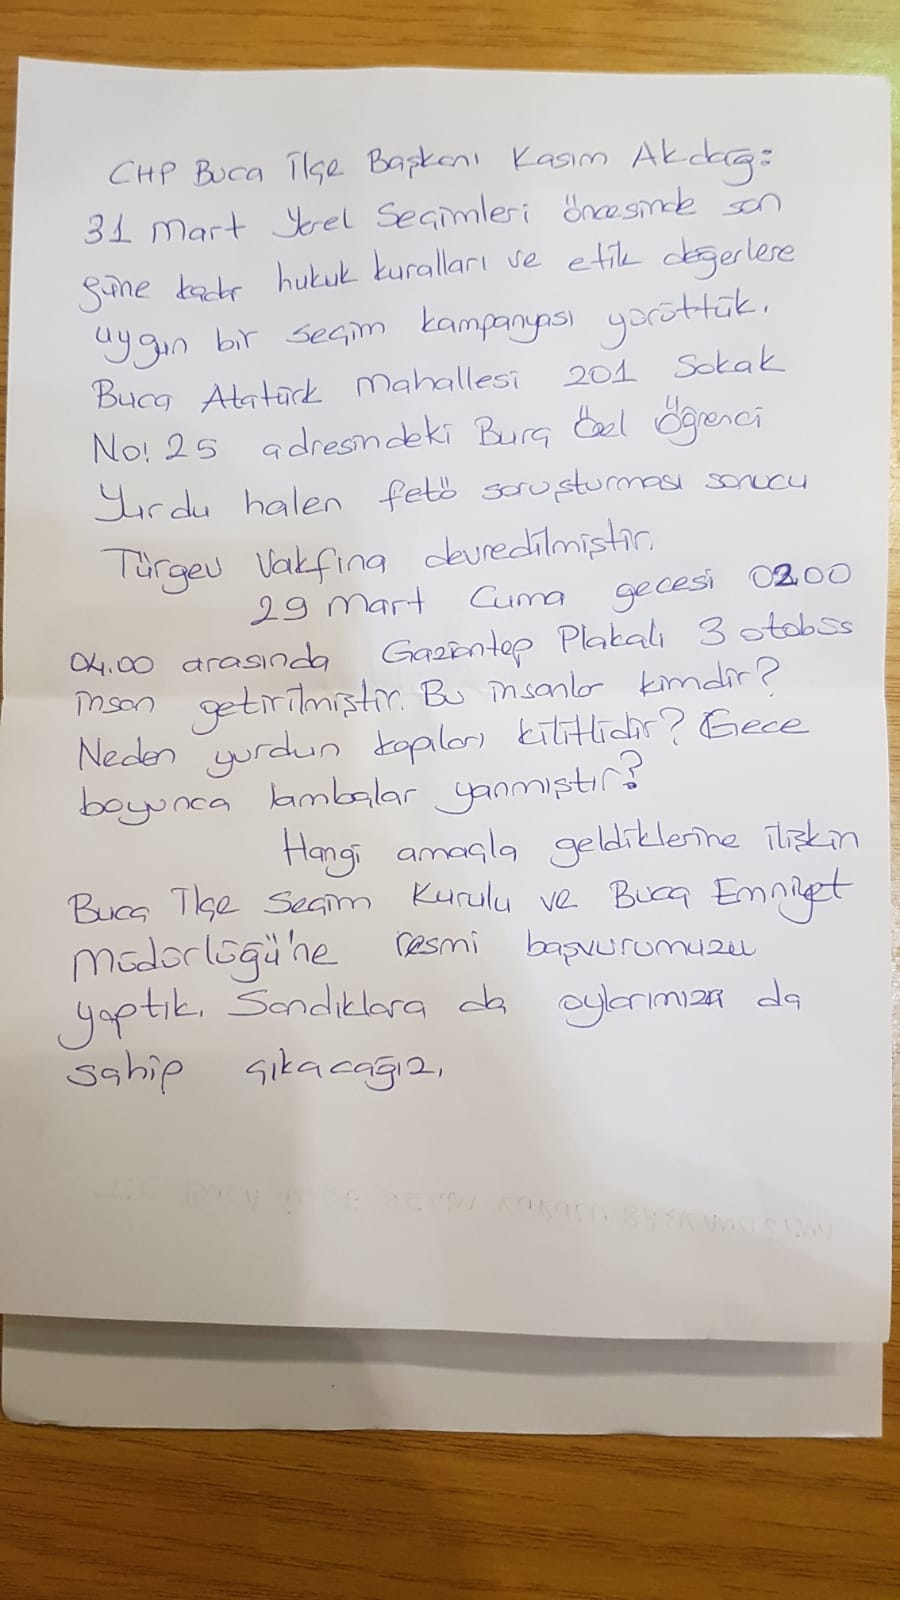 CHP Buca İlçe Başkanı Kasım Akdağ:
31 Mart Yerel Seçimleri öncesinde son
güne kadar hukuk kuralları ve etik değerlere
uygun bir seçim kampanyası yürüttük.
Buca Atatürk Mahallesi 201 Sokak
No: 25 adresindeki Burç Özel Öğrenci
Yurdu halen fetö soruşturması sonucu
Türgev Vakfına devredilmiştir.
29 Mart Cuma gecesi 02.00
04.00 arasında Gaziantep Plakalı 3 otobüs
insan getirilmiştir. Bu insanlar kimdir?
Neden yurdun kapıları kilitlidir? Gece
boyunca lambalar yanmıştır?
Hangi amaçla geldiklerine ilişkin
Buca İlçe Seçim Kurulu ve Buca Emniyet
Müdürlüğü'ne resmi başvurumuzu
yaptık. Sandıklara da oylarımıza da
sahip çıkacağız.